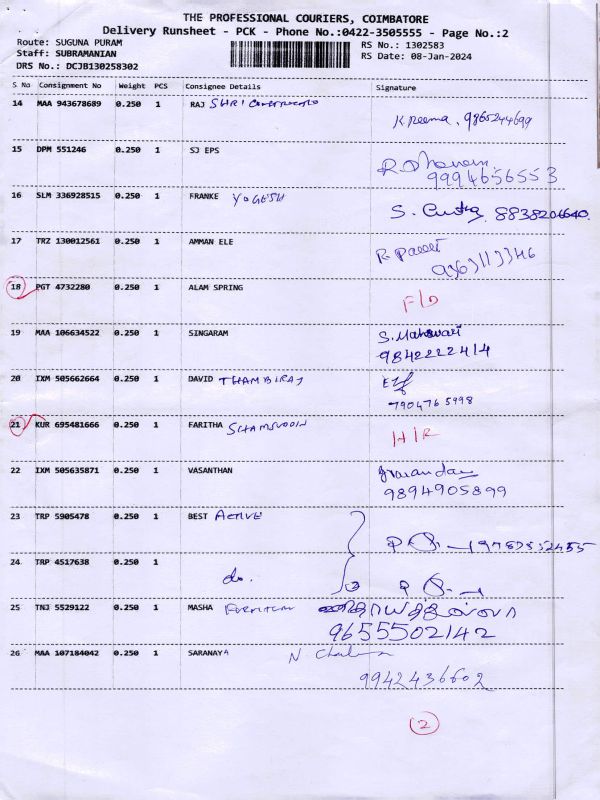 THE PROFESSIONAL COURIERS, COIMBATORE
Delivery Runsheet - PCK - Phone No.:0422-3505555 - Page No.:2
Route: SUGUNA PURAM RS No.: 1302583
Staff: SUBRAMANIAN RS Date: 08-Jan-2024
DRS No.: DCJB130258302
S No Consignment No Weight PCS Consignee Details Signature
14 MAA 943678689 0.250 1 RAJ SHRI
K Reema. 9865244699
15 DPM 551246 0.250 1 SJ EPS
9994656553
16 SLM 336928515 0.250 1 FRANKE YOGESH
S. 8838206640
17 TRZ 130012561 0.250 1 AMMAN ELE
9363113346
18 PGT 4732280 0.250 1 ALAM SPRING
F/D
19 MAA 106634522 0.250 1 SINGARAM S. Maheswari
9842222414
20 IXM 505662664 0.250 1 DAVID THAMBIRAJ
7904765998
21 KUR 695481666 0.250 1 FARITHA SHAMSUDDIN
H/R
22 IXM 505635871 0.250 1 VASANTHAN
9894905899
23 TRP 5905478 0.250 1 BEST ACTIVE
24 TRP 4517638 0.250 1
do.
25 TNJ 5529122 0.250 1 MASHA FURNITURE
9655502142
26 MAA 107184042 0.250 1 SARANAYA N
9942436602
2